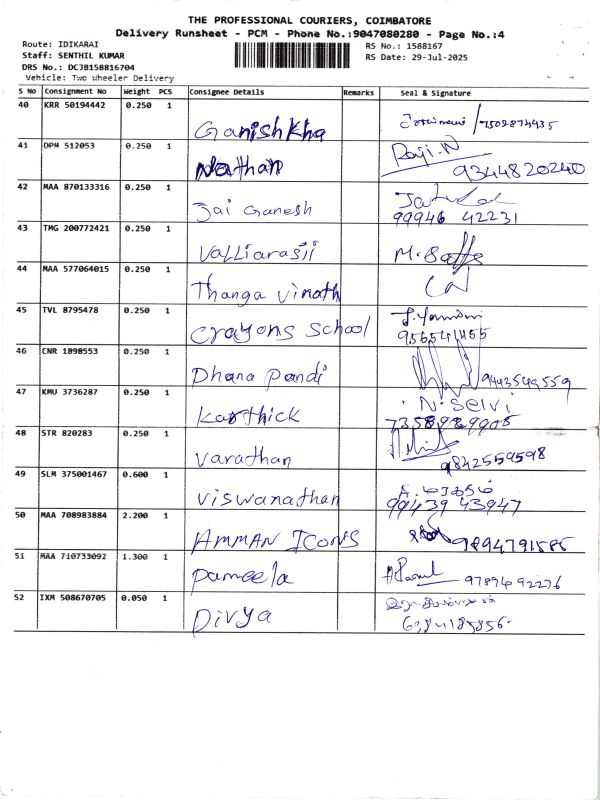 THE PROFESSIONAL COURIERS, COIMBATORE
Delivery Runsheet - PCM - Phone No.:9047080280 - Page No.:4
Route: IDIKARAI RS No.: 1588167
Staff: SENTHIL KUMAR RS Date: 29-Jul-2025
DRS No.: DCJB158816704
Vehicle: Two Wheeler Delivery
S No Consignment No Weight PCS Consignee Details Remarks Seal & Signature
40 KRR 50194442 0.250 1
Ganishkha 7502874435
41 DPM 512053 0.250 1 Raji.N
Nathan 9344820240
42 MAA 870133316 0.250 1
Jai Ganesh 99946 42231
43 TMG 200772421 0.250 1
Valliarasii
44 MAA 577064015 0.250 1
Thanga vinoth
45 TVL 8795478 0.250 1
Crayons School
46 CNR 1898553 0.250 1
Dhana Pandi 9443549559
47 KMU 3736287 0.250 1 N. Selvi
Karthick
48 STR 820283 0.250 1
Varathan 9842559598
49 SLM 375001467 0.600 1
Viswanathan 99439 43947
50 MAA 708983884 2.200 1
AMMAN ICONS 9894791585
51 MAA 710733092 1.300 1
Pameela 97896 92276
52 IXM 508670705 0.050 1
Divya 6384185856